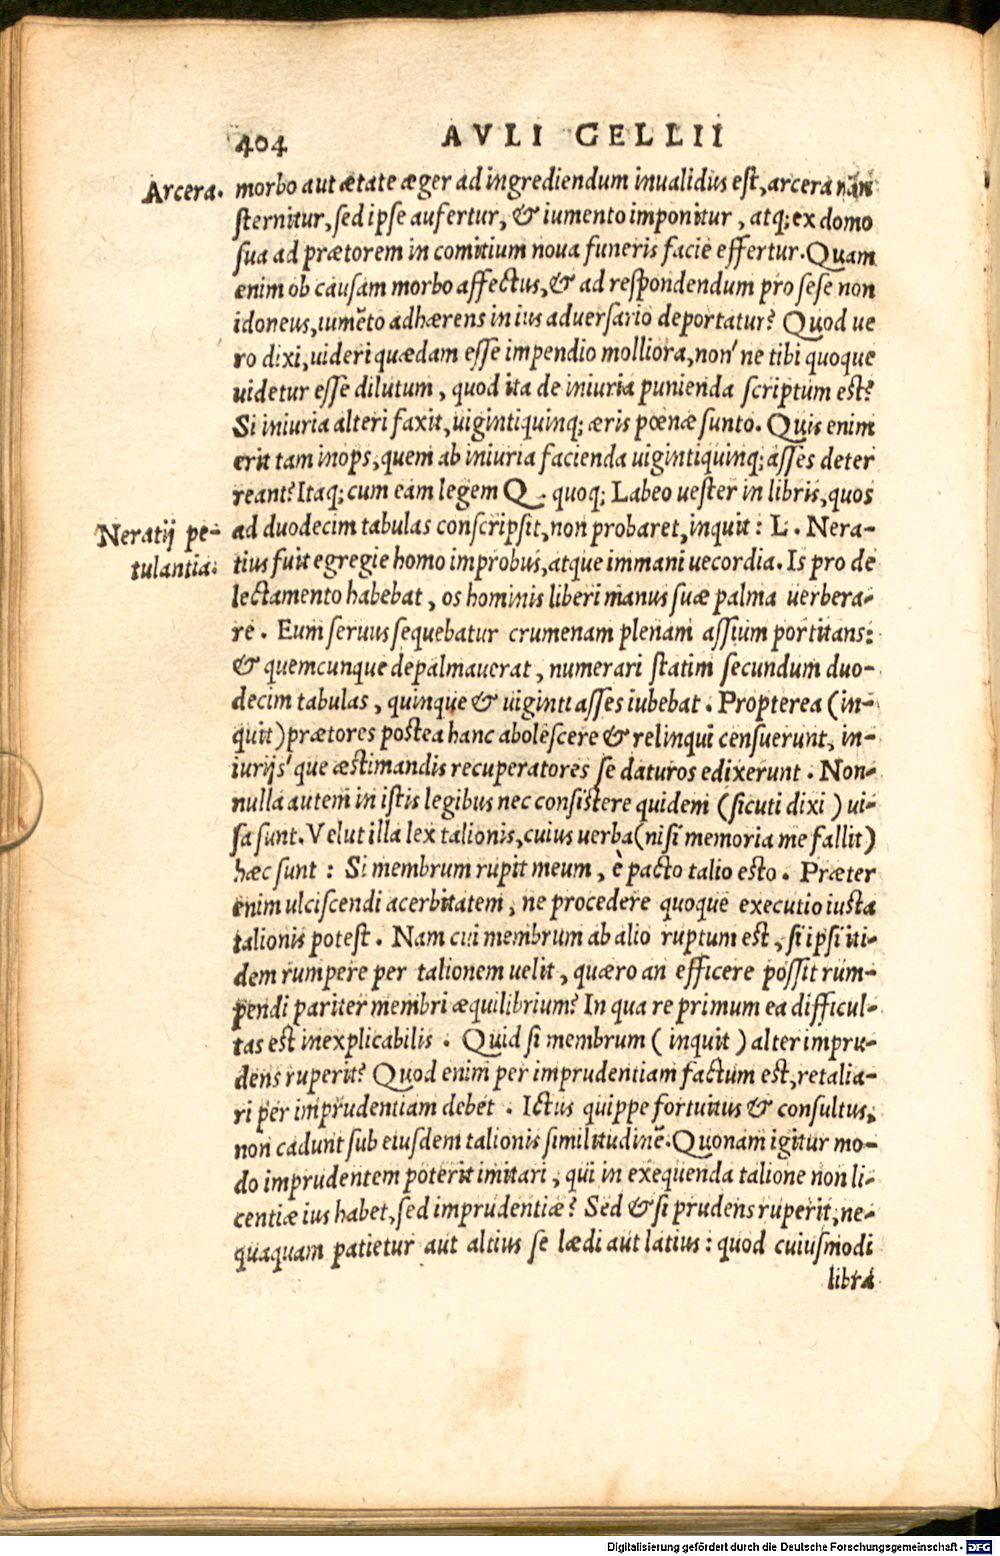 404 AVLI GELLII
Arcera. morbo aut ætate æger ad ingrediendum inualidus est, arcera nón
sternitur, sed ipse aufertur, & iumento imponitur, atq; ex domo
sua ad prætorem in comitium noua funeris facie effertur. Quam
enim ob causam morbo affectus, & ad respondendum pro sese non
idoneus, iumẽto adhærens in ius aduersario deportatur? Quod ue
ro dixi, uideri quædam esse impendio molliora, non'ne tibi quoque
uidetur esse dilutum, quod ita de iniuria punienda scriptum est?
Si iniuria alteri faxit, uigintiquinq; æris pœnæ sunto. Quis enim
erit tam inops, quem ab iniuria facienda uigintiquinq; asses deter
reant? Itaq; cum eam legem Q. quoq; Labeo uester in libris, quos
Neratij pe- ad duodecim tabulas conscripsit, non probaret, inquit: L. Nera-
tulantia. tius fuit egregie homo improbus, atque immani uecordia. Is pro de
lectamento habebat, os hominis liberi manus suæ palma uerbera-
re. Eum seruus sequebatur crumenam plenam assium portitans:
& quemcunque depalmauerat, numerari statim secundum duo-
decim tabulas, quinque & uiginti asses iubebat. Propterea (in-
quit) prætores postea hanc abolescere & relinqui censuerunt, in-
iurijs'que æstimandis recuperatores se daturos edixerunt. Non-
nulla autem in istis legibus nec consistere quidem (sicuti dixi) ui-
sa sunt. Velut illa lex talionis, cuius uerba (nisi memoria me fallit)
hæc sunt: Si membrum rupit meum, è pacto talio esto. Præter
enim ulciscendi acerbitatem, ne procedere quoque executio iusta
talionis potest. Nam cui membrum ab alio ruptum est, si ipsi iti-
dem rumpere per talionem uelit, quæro an efficere possit rum-
pendi pariter membri æquilibrium? In qua re primum ea difficul-
tas est inexplicabilis. Quid si membrum (inquit) alter impru-
dens ruperit? Quod enim per imprudentiam factum est, retalia-
ri per imprudentiam debet. Ictus quippe fortuitus & consultus,
non cadunt sub eiusdem talionis similitudinẽ. Quonam igitur mo-
do imprudentem poterit imitari, qui in exequenda talione non li-
centiæ ius habet, sed imprudentiæ? Sed & si prudens ruperit, ne-
quaquam patietur aut altius se lædi aut latius: quod cuiusmodi
libra
Digitalisierung gefördert durch die Deutsche Forschungsgemeinschaft - DFG